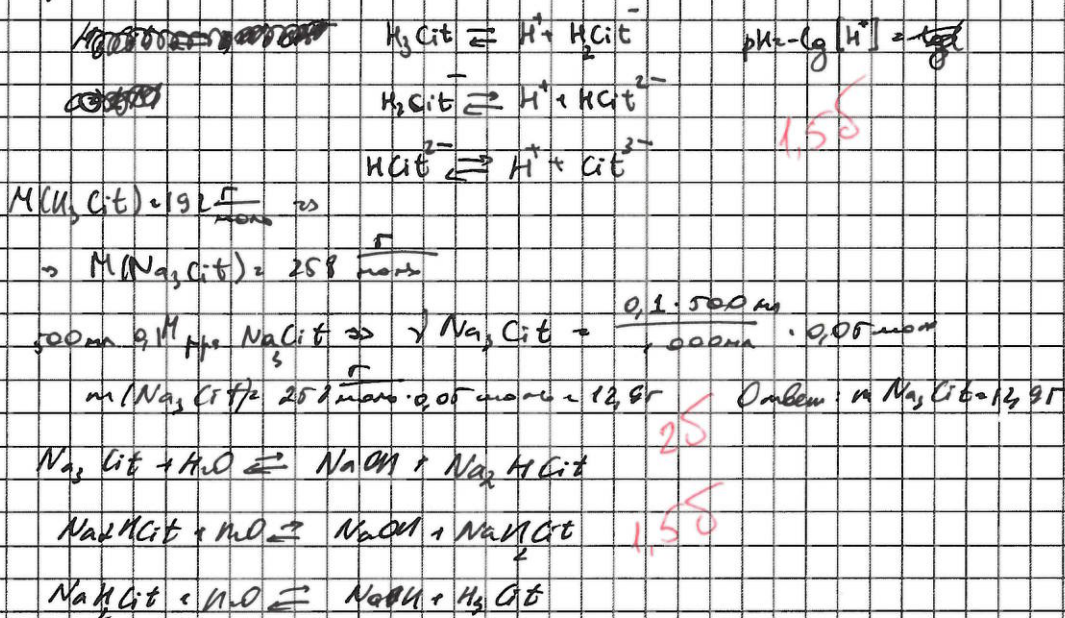 H₃Cit ⇌ H⁺ + H₂Cit⁻ pH=-lg[H⁺] =
H₂Cit⁻ ⇌ H⁺ + HCit²⁻
1,5б
HCit²⁻ ⇌ H⁺ + Cit³⁻
M(H₃Cit)=192 г/моль ⇒
⇒ M(Na₃Cit)= 258 г/моль
500мл 0,1М р-ра Na₃Cit ⇒ ν Na₃Cit = 0,1·500мл/1000мл = 0,05 моль
m(Na₃Cit)= 258 г/моль·0,05 моль = 12,9г Ответ: m Na₃Cit=12,9г
2б
Na₃Cit + H₂O ⇌ NaOH + Na₂HCit
Na₂HCit + H₂O ⇌ NaOH + NaH₂Cit 1,5б
NaH₂Cit + H₂O ⇌ NaOH + H₃Cit